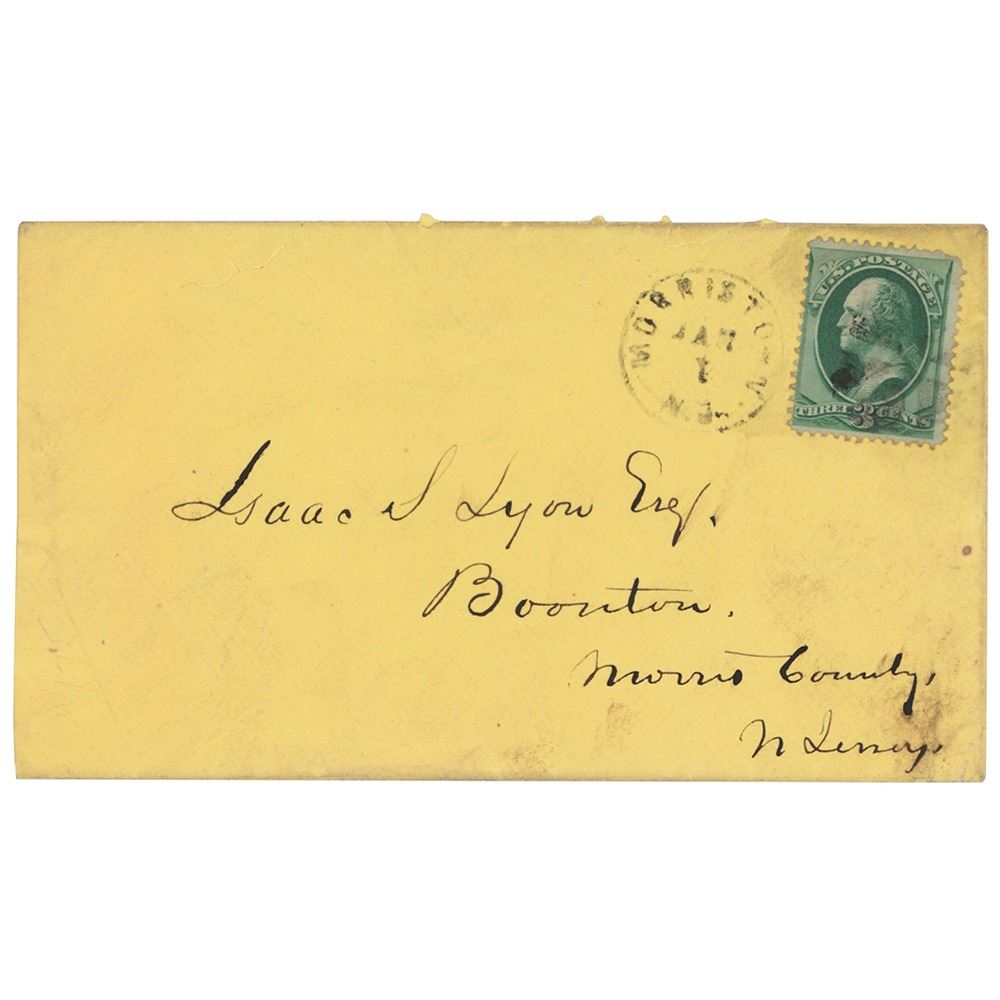 MORRISTOWN
JAN
1
N.J.
U.S. POSTAGE
THREE 3 CENTS
Isaac S Lyon Esq.
Boonton.
Morris County,
N Jersey.